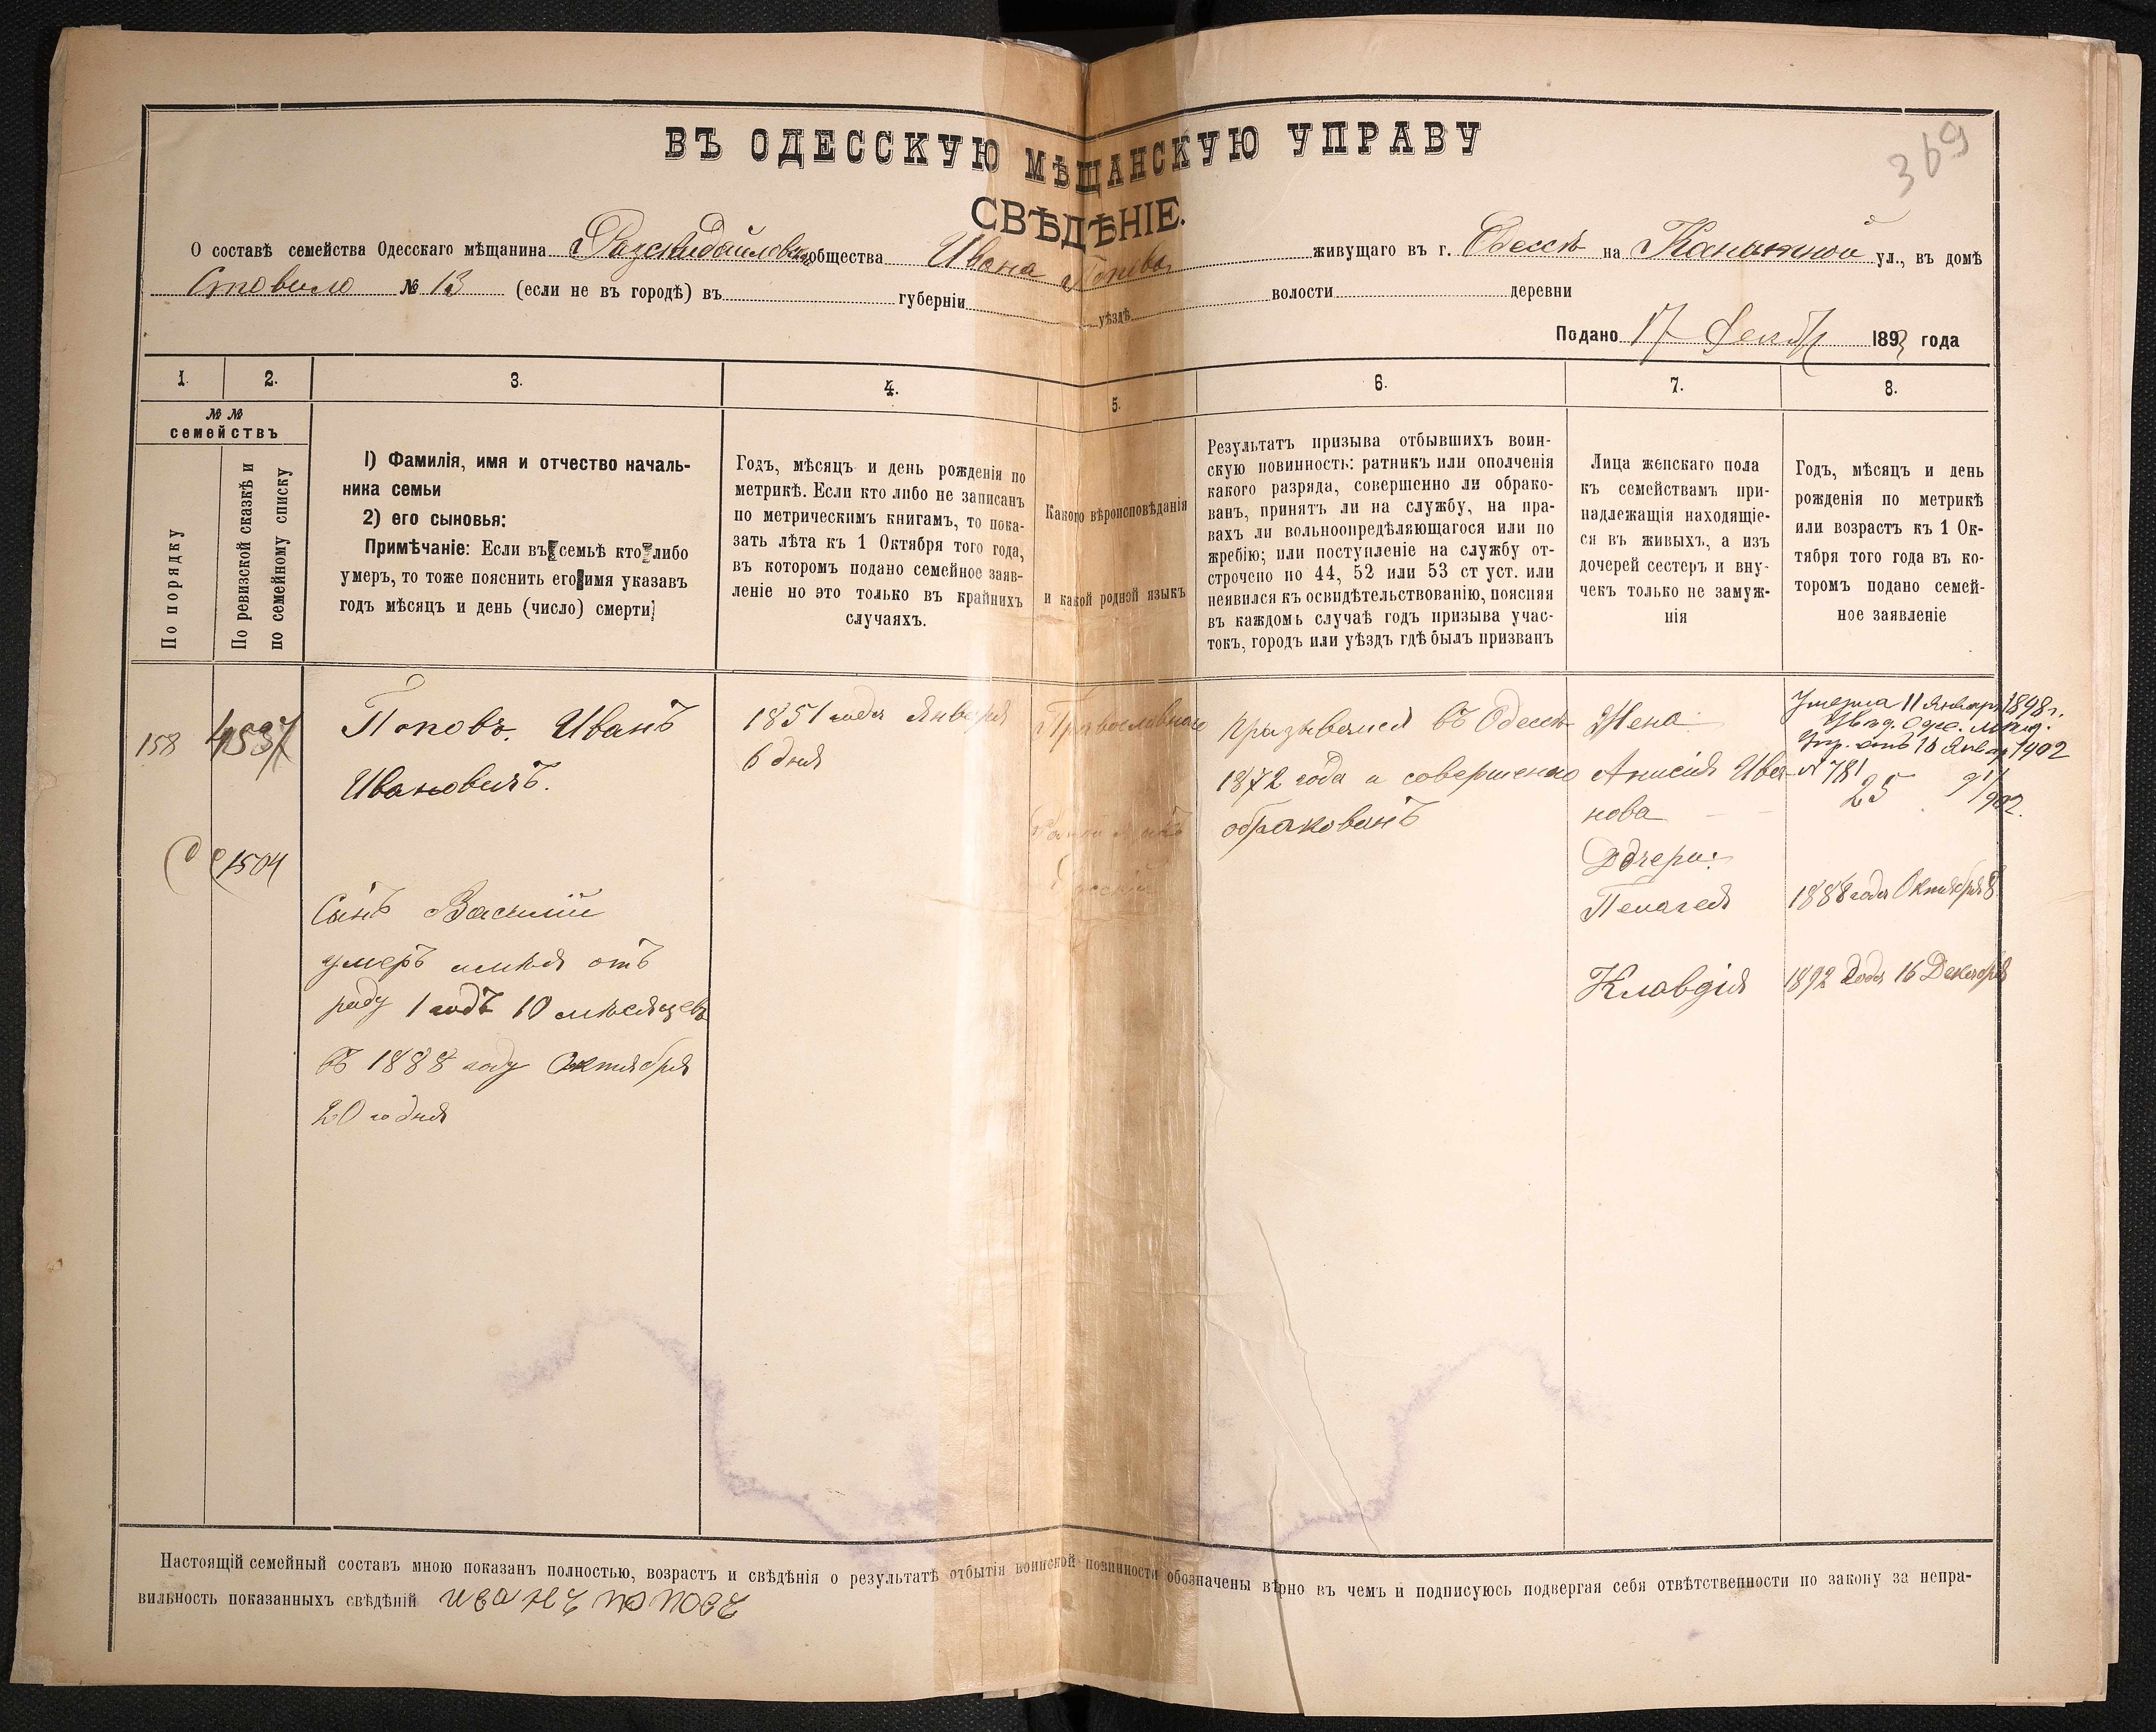 369
ВЪ ОДЕССКУЮ МѢЩАНСКУЮ УПРАВУ
СВѢДѢНІЕ.
О составѣ семейства Одесскаго мѣщанина общества Ивана Попова живущаго въ г. Одессѣ на Канатной ул., въ домѣ
№ 13 (если не въ городѣ) въ губерніи уѣздѣ волости деревни
Подано 17 189 года
1. 2. 3. 4. 5. 6. 7. 8.
№ №
семействъ
По порядку
По ревизской сказкѣ и
по семейному списку
1) Фамилія, имя и отчество началь-
ника семьи
2) его сыновья:
Примѣчаніе: Если въ семьѣ кто либо
умеръ, то тоже пояснить его имя указавъ
годъ мѣсяцъ и день (число) смерти
Годъ, мѣсяцъ и день рожденія по
метрикѣ. Если кто либо не записанъ
по метрическимъ книгамъ, то пока-
зать лѣта къ 1 Октября того года,
въ которомъ подано семейное заяв-
леніе но это только въ крайнихъ
случаяхъ.
Какого вѣроисповѣданія
и какой родной языкъ
Результатъ призыва отбывшихъ воин-
скую повинность: ратникъ или ополченія
какого разряда, совершенно ли обрако-
ванъ, принятъ ли на службу, на пра-
вахъ ли вольноопредѣляющагося или по
жребію; или поступленіе на службу от-
строчено по 44, 52 или 53 ст уст. или
неявился къ освидѣтельствованію, поясняя
въ каждомъ случаѣ годъ призыва учас-
токъ, городъ или уѣздъ гдѣ былъ призванъ
Лица женскаго пола
къ семействамъ при-
надлежащія находящіе-
ся въ живыхъ, а изъ
дочерей сестеръ и вну-
чекъ только не замуж-
нія
Годъ, мѣсяцъ и день
рожденія по метрикѣ
или возрастъ къ 1 Ок-
тября того года въ ко-
торомъ подано семей-
ное заявленіе
158
4537
1504
Поповъ. Иванъ
Ивановичъ.
Сынъ Василий
умеръ имѣя отъ
роду 1 годъ 10 мѣсяцевъ
въ 1888 году Октября
20 го дня
1851 года Января
6 дня
Православного
Родной языкъ
Русскій
призывался въ Одессѣ
1872 года и совершенно
обракованъ
Жена
Анисия Ива-
нова
Дочери:
Пелагея
Клавдія
Умерла 11 Января 1898 г.
Упр. отъ Января 1902
№ 781
25
1888 года Октября 8
1892 года 16 Декабря
Настоящій семейный составъ мною показанъ полностью, возрастъ и свѣдѣнія о результатѣ отбытія воинской повинности обозначены вѣрно въ чемъ и подписуюсь подвергая себя отвѣтственности по закону за непра-
вильность показанныхъ свѣдѣній иванъ поповъ